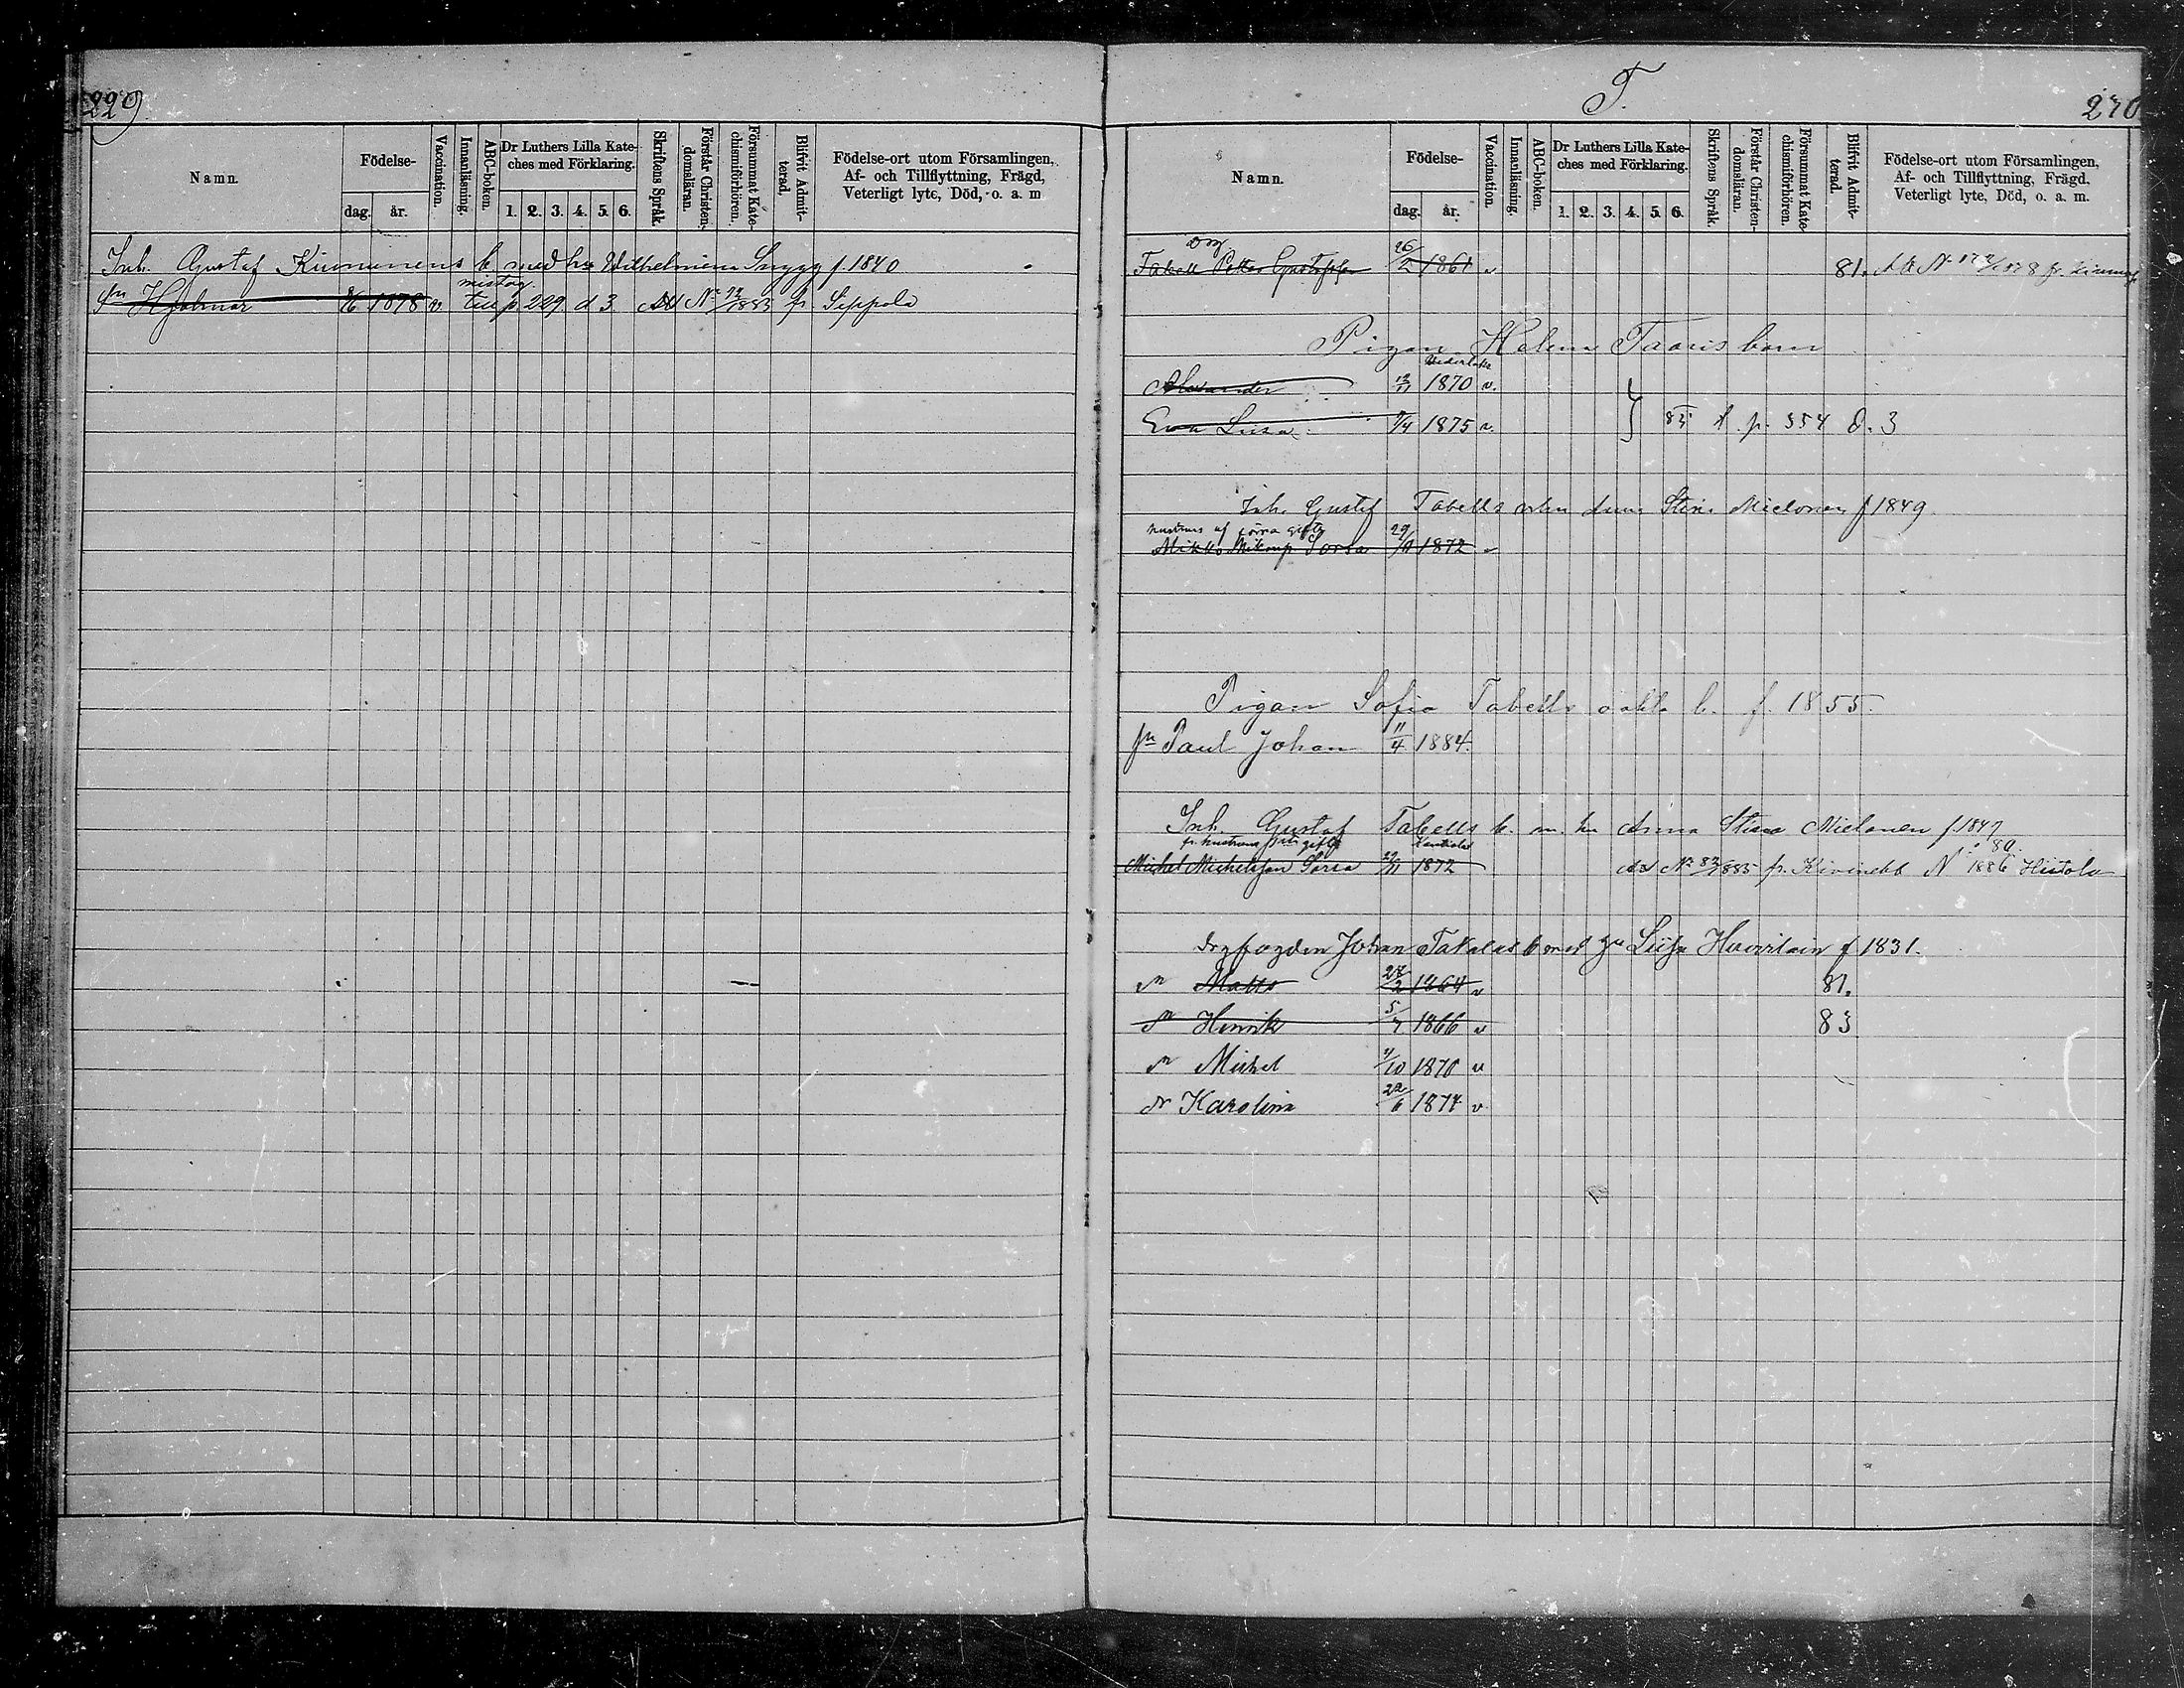 229
Namn.
Födelse-
dag. år.
Vaccination.
Innanläsning.
ABC-boken.
Dr Luthers Lilla Kate-
ches med Förklaring.
1. 2. 3. 4. 5. 6.
Skriftens Språk.
Förstår Christen-
domsläran.
Försummat Kate-
chismiförhören.
Blifvit Admit-
terad.
Födelse-ort utom Församlingen,
Af- och Tillflyttning, Frägd,
Veterligt lyte, Död, o. a. m
Inh. Gustaf Kinnunens b. med hu Wilhelmiena Snygg f. 1840
mistag.
sn Hjalmar 1878 v. till p. 229. d 3. Att No 1883 fr. Sippola
T.
270
Namn.
Födelse-
dag. år.
Vaccination.
Innanläsning.
ABC-boken.
Dr Luthers Lilla Kate-
ches med Förklaring.
1. 2. 3. 4. 5. 6.
Skriftens Språk.
Förstår Christen-
domsläran.
Försummat Kate-
chismiförhören.
Blifvit Admit-
terad.
Födelse-ort utom Församlingen,
Af- och Tillflyttning, Frägd,
Veterligt lyte, Död, o. a. m.
Tabell Petter Gustafss 26/2 1861 v 81. Att No 1878 fr.
Pigan Helena Taaris barn
Alexander 12/11 1870 v.
Ewa Liisa 9/4 1875 v. } 83 p. 354 d. 3
Inh. Gustaf Tabells Anna Stina Mielonen f 1849
hustruns af förra gifte
Mikko Mikonp. Sorsa 29/11 1872 v
Pigan Sofia Tabells oäkta b. f. 1855.
sn Paul Johan 11/4 1884.
Inh. Gustaf Tabells b. m. hu Anna Stina Mielonen f. 1849
fr. hustruns gifte
Michel Michelsson Sorsa 29/11 1872 Att No 83/1885 fr. Kivinebb N 80. 1886 Hiitola
Johan Takalas b med hu Liisa f 1831.
sn Matts 24/2 1864 v 81.
sn Henrik 5/7 1866 v 83
sn Michel 1870 v
dr Karolina 22/6 1874 v